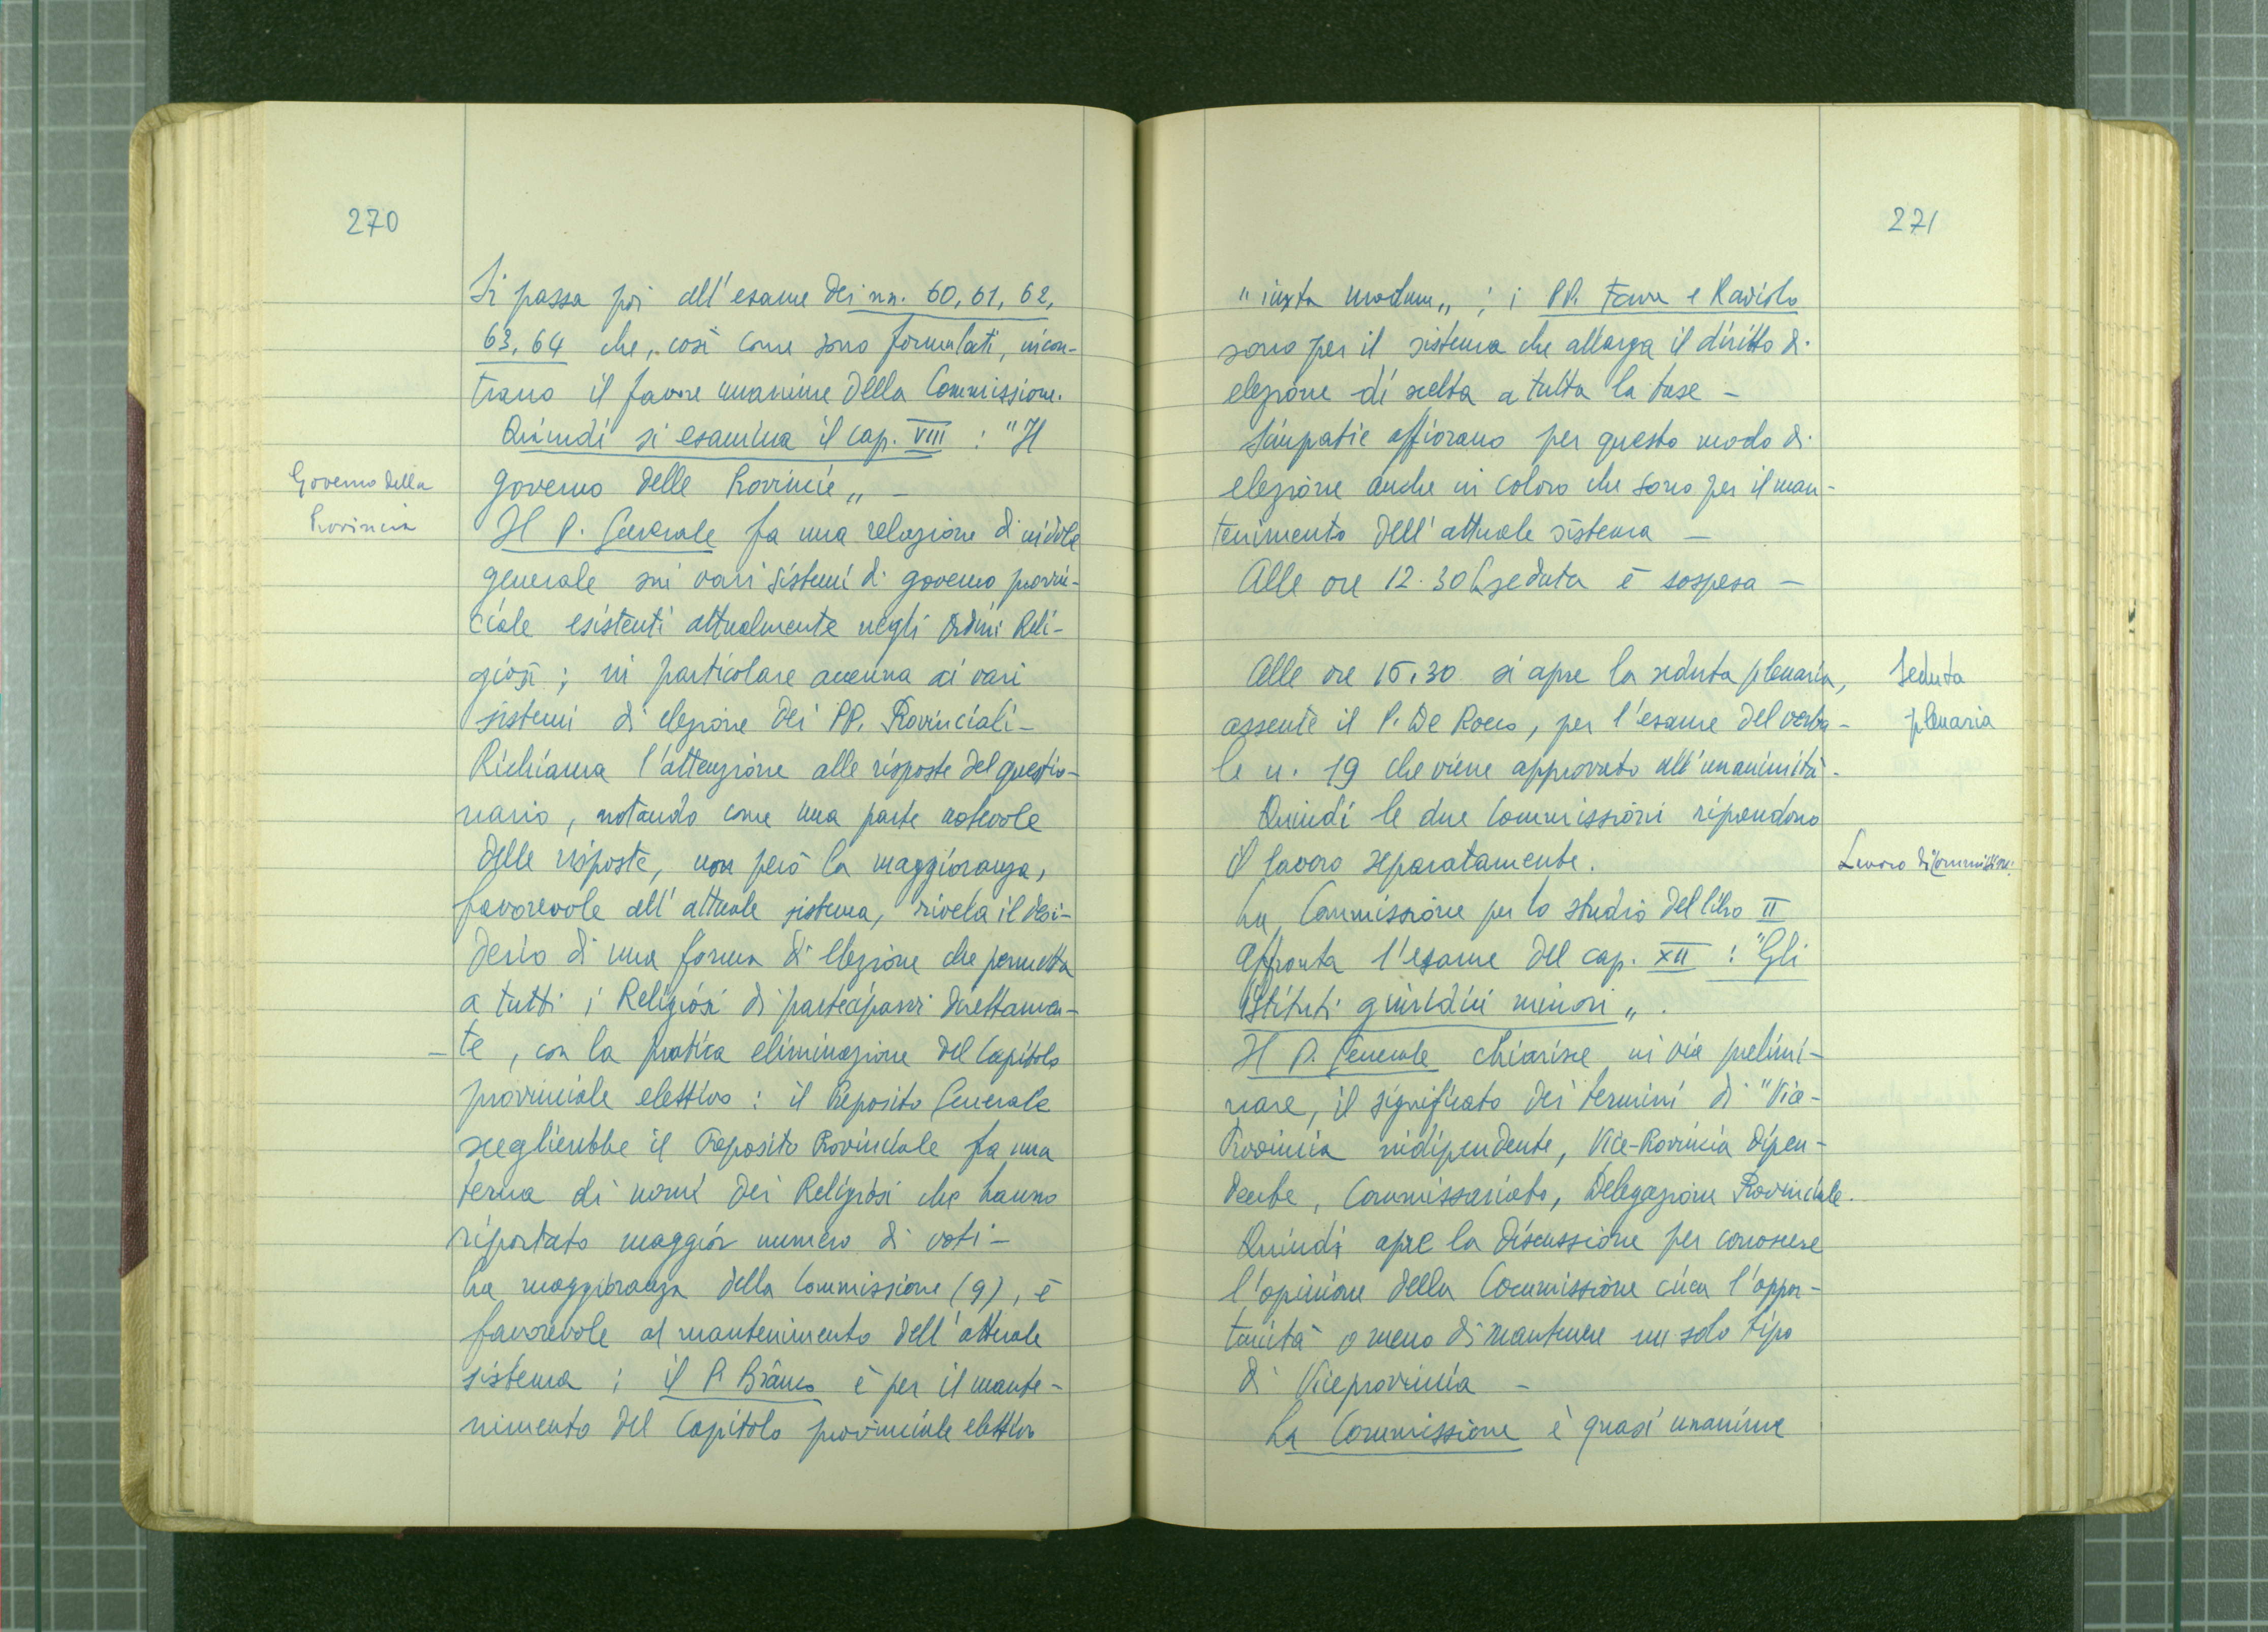 270
Si passa poi all'esame dei nn. 60, 61, 62,
63, 64 che, così come sono formulati, incon-
trano il favore unanime della Commissione.
Quindi si esamina il cap. VIII : "Il
Governo della
Provincia
governo delle Provincie„ -
Il P. Generale fa una relazione di indole
generale sui vari sistemi di governo provin-
ciale esistenti attualmente negli Ordini Reli-
giosi ; in particolare accenna ai vari
sistemi di elezione dei PP. Provinciali -
Richiama l'attenzione alle risposte del questio-
nario, notando come una parte notevole
delle risposte, non però la maggioranza,
favorevole all'attuale sistema, rivela il desi-
derio di una forma di elezione che permetta
a tutti i Religiosi di parteciparvi direttamen-
te, con la pratica eliminazione del Capitolo
provinciale elettivo : il Preposito Generale
sceglierebbe il Preposito Provinciale fra una
terna di nomi dei Religiosi che hanno
riportato maggior numero di voti -
La maggioranza della Commissione (9), è
favorevole al mantenimento dell'attuale
sistema ; il P. Branco è per il mante-
nimento del Capitolo provinciale elettivo
271
"iuxta modum„ ; i PP. Fava e Raviolo
sono per il sistema che allarga il diritto di
elezione di scelta a tutta la base -
Simpatie affiorano per questo modo di
elezione anche in coloro che sono per il man-
tenimento dell'attuale sistema -
Alle ore 12.30 la seduta è sospesa -
Alle ore 15,30 si apre la seduta plenaria,
Seduta
plenaria
assente il P. De Rocco, per l'esame del verba-
le n. 19 che viene approvato all'unanimità.
Quindi le due Commissioni riprendono
il lavoro separatamente.
Lavoro di Commissione
La Commissione per lo studio del libro II
affronta l'esame del cap. XII : "Gli
istituti giuridici minori„.
Il P. Generale chiarisce in via prelimi-
nare, il significato dei termini di "Vice-
Provincia indipendente, Vice-Provincia dipen-
dente, Commissariato, Delegazione Provinciale.
Quindi apre la discussione per conoscere
l'opinione della Commissione circa l'oppor-
tunità o meno di mantenere un solo tipo
di Viceprovincia -
La Commissione è quasi unanime